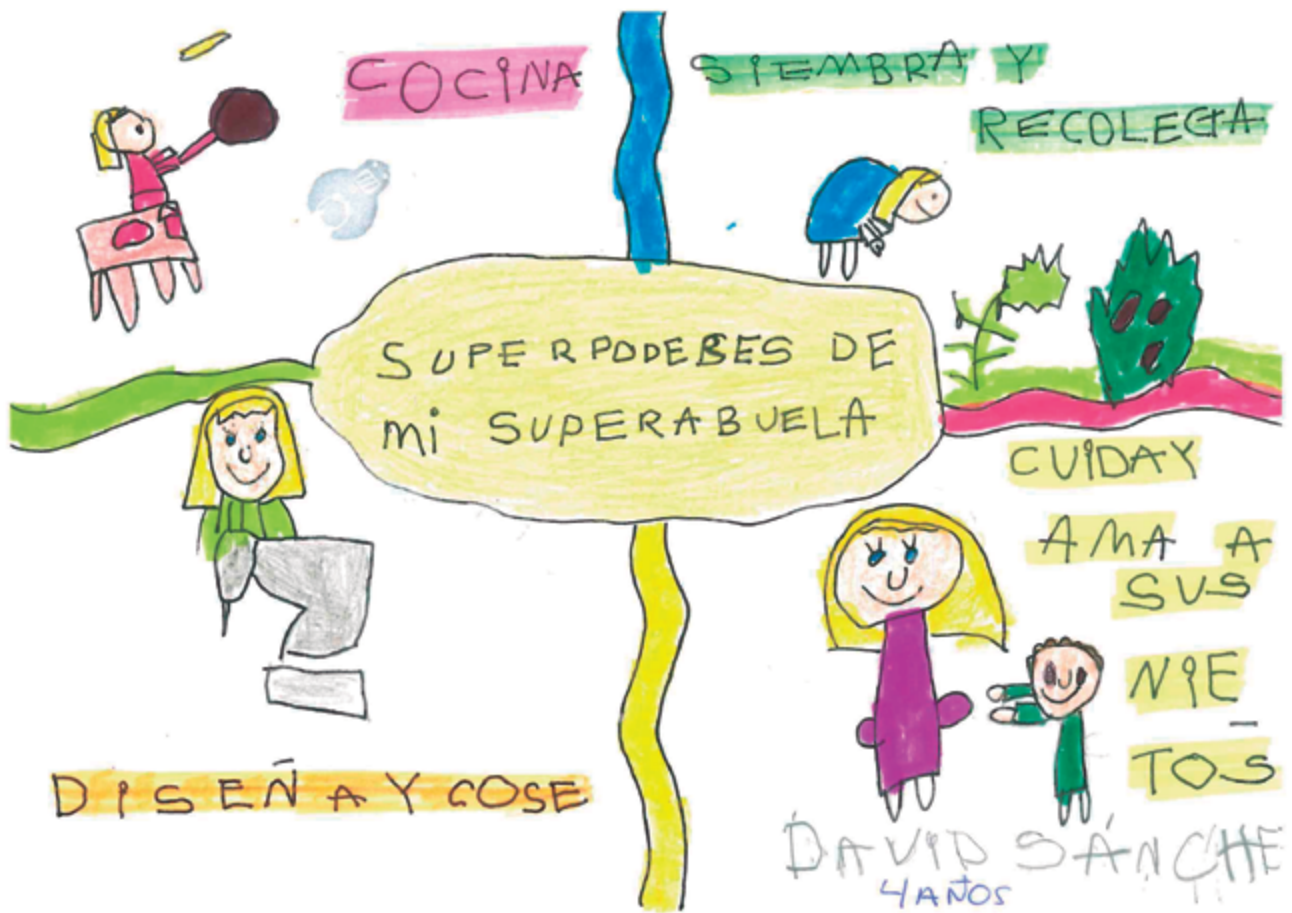 COCINA
SIEMBRA Y
RECOLECTA
SUPERPODERES DE
mi SUPERABUELA
CUIDA Y
AMA A
SUS
NIE
TOS
DISEÑA Y COSE
DAVID SÁNCHE
4 AÑOS